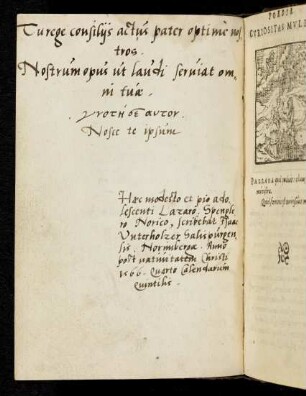 Tu rege consilijs actus pater optime nos
tros.
Nostrum opus ut laudi serviat om
ni tuæ.
γνοτη σε αυτον.
Nosce te ipsum.
Hæc modesto et pio ado
lescenti Lazaro Spengle
ro Norico, scribebat Isaac
Unterholzer Salispurgen
sis. Norinbergæ. Anno
post nativitatem Christi
1566. Quarto Calendarum
Quintilis.
CURIOSITAS MULI